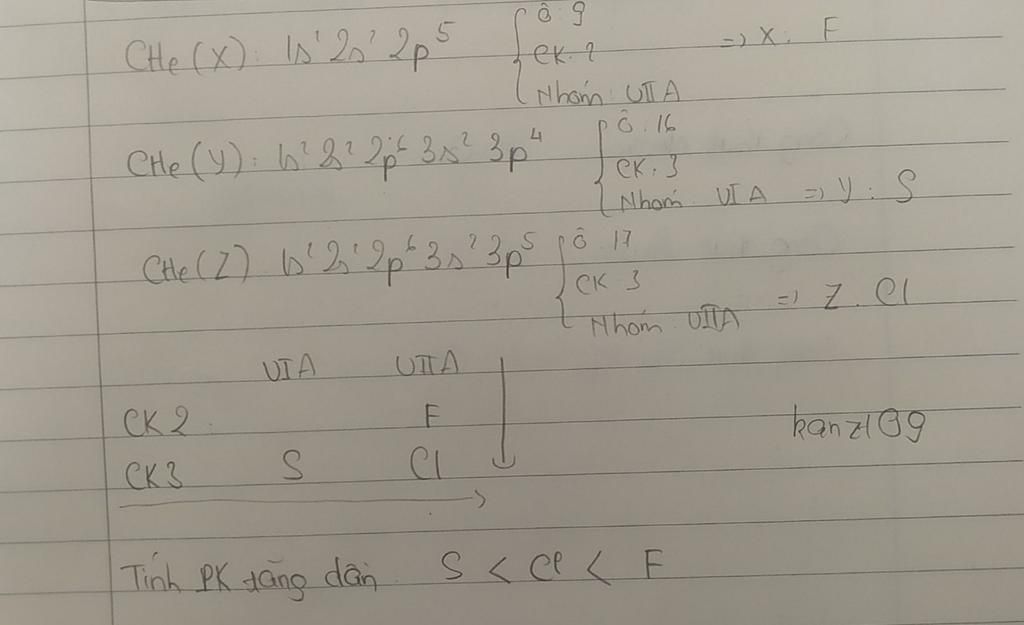 CHe (X): 1s² 2s² 2p⁵ { Ô: 9
CK: 2 => X: F
Nhóm: VIIA
CHe (Y): 1s² 2s² 2p⁶ 3s² 3p⁴ { Ô: 16
CK: 3
Nhóm: VIA => Y: S
CHe (Z) 1s² 2s² 2p⁶ 3s² 3p⁵ { Ô 17
CK 3 => Z. Cl
Nhóm VIIA
VIA VIIA
CK 2 F
kanz109
CK3 S Cl
Tính PK tăng dần S < Cl < F